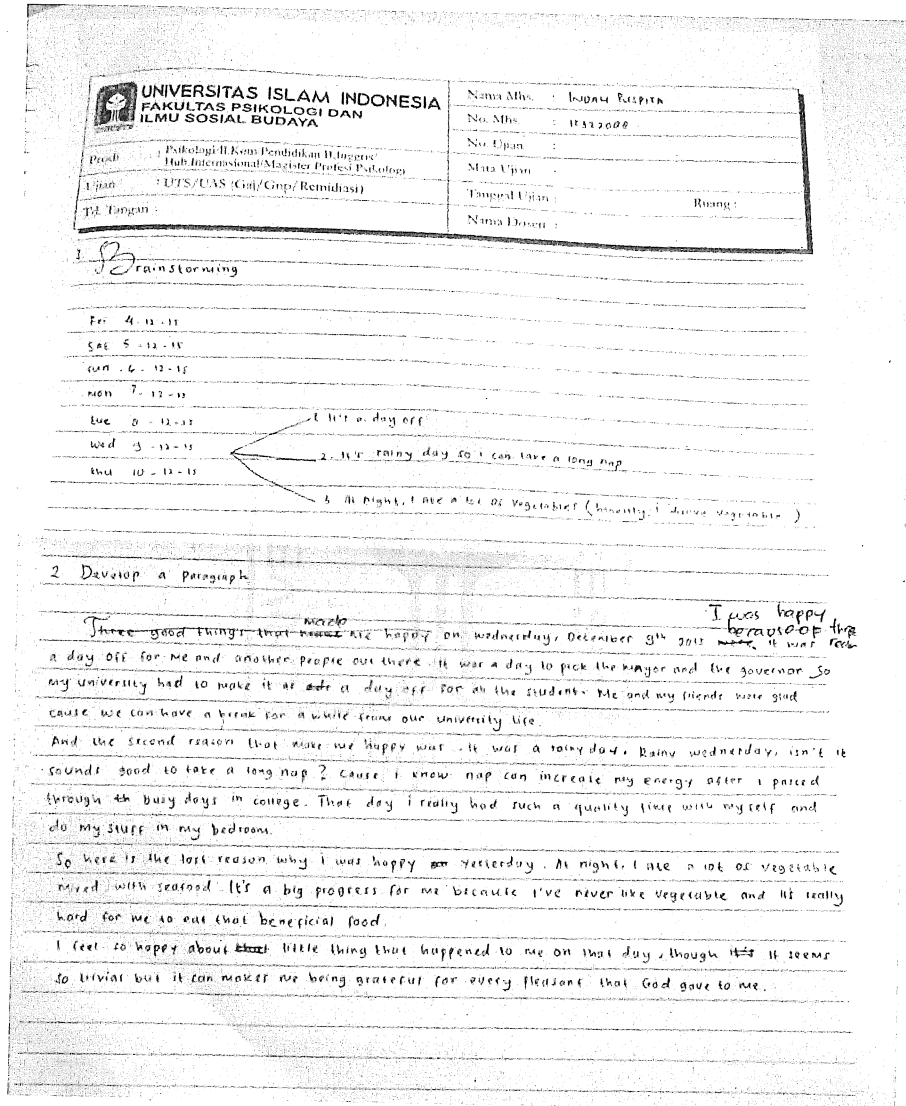 UNIVERSITAS ISLAM INDONESIA
FAKULTAS PSIKOLOGI DAN
ILMU SOSIAL BUDAYA
Prodi : Psikologi/Il.Kom/Pendidikan B.Inggris/
Hub.Internasional/Magister Profesi Psikologi
Ujian : UTS/UAS (Gsj/Gnp/Remidiasi)
Td. Tangan :
Nama Mhs. : INDAH PUSPITA
No. Mhs. :
No. Ujian :
Mata Ujian :
Tanggal Ujian : Ruang :
Nama Dosen :
1 Brainstorming
Fri 4-12-15
Sat 5-12-15
sun 6-12-15
mon 7-12-15
tue 8-12-15
wed 9-12-15
thu 10-12-15
1. It's a day off
2. It's rainy day so i can take a long nap
3. At night, I ate a lot of vegetables (honestly, i vegetable)
2 Develop a Paragraph
I was happy
because of
Three good thing's that made me happy on wednesday, December 9th 2015 it was
a day off for me and another people out there. It was a day to pick the mayor and the governor so
my university had to make it as a day off for all the students. Me and my friends were glad
cause we can have a break for a while from our university life.
And the second reason that make me happy was. it was a rainy day. Rainy wednesday, isn't it
sounds good to take a long nap? cause i know nap can increase my energy after i passed
through th busy days in college. That day i really had such a quality time with myself and
do my stuff in my bedroom.
So here is the last reason why i was happy yesterday. At night, I ate a lot of vegetable
mixed with seafood. It's a big progress for me because I've never like vegetable and it's really
hard for me to eat that beneficial food.
I feel so happy about that little thing that happened to me on that day, though it's it seems
so trivial but it can makes me being grateful for every pleasant that God gave to me.